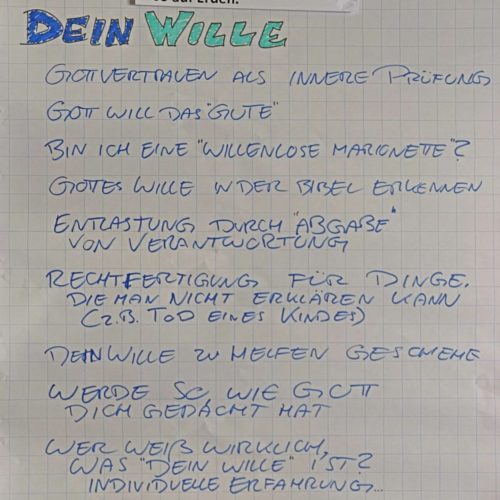 so auf Erden.
DEIN WILLE
GOTTVERTRAUEN ALS INNERE PRÜFUNG
GOTT WILL DAS "GUTE"
BIN ICH EINE "WILLENLOSE MARIONETTE"?
GOTTES WILLE IN DER BIBEL ERKENNEN
ENTLASTUNG DURCH "ABGABE"
VON VERANTWORTUNG
RECHTFERTIGUNG FÜR DINGE.
DIE MAN NICHT ERKLÄREN KANN
(Z.B. TOD EINES KINDES)
DEIN WILLE ZU HELFEN GESCHEHE
WERDE SO, WIE GOTT
DICH GEDACHT HAT
WER WEIß WIRKLICH,
WAS "DEIN WILLE" IST?
INDIVIDUELLE ERFAHRUNG...